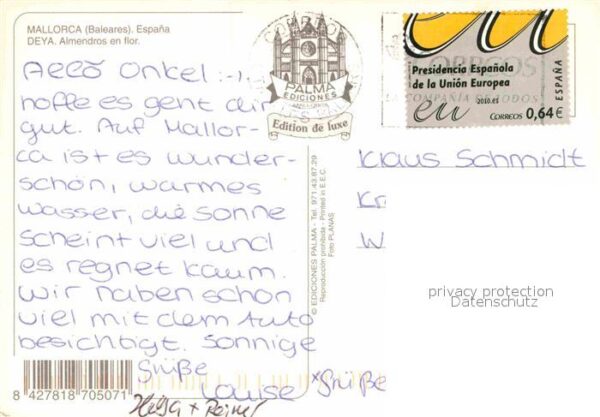 MALLORCA (Baleares). España
DEYA. Almendros en flor.
PALMA
EDICIONES
MALLORCA
Edition de luxe
CORREOS
Presidencia Española
de la Unión Europea
eu
2010.es
CORREOS 0,64€
ESPAÑA
Alló Onkel :-),
hoffe es geht dir
gut. Auf Mallor-
ca ist es wunder-
schön, warmes
wasser, die Sonne
scheint viel und
es regnet kaum.
Wir haben schon
viel mit dem Auto
besichtigt. Sonnige
Grüße
Louise *Grüße
Helga + Reiner
Klaus Schmidt
Kr
W
privacy protection
Datenschutz
© EDICIONES PALMA - Tel. 971-43.87.29
Reproducción prohibida - Printed in E.E.C.
Foto PLANAS
8 427818 705071